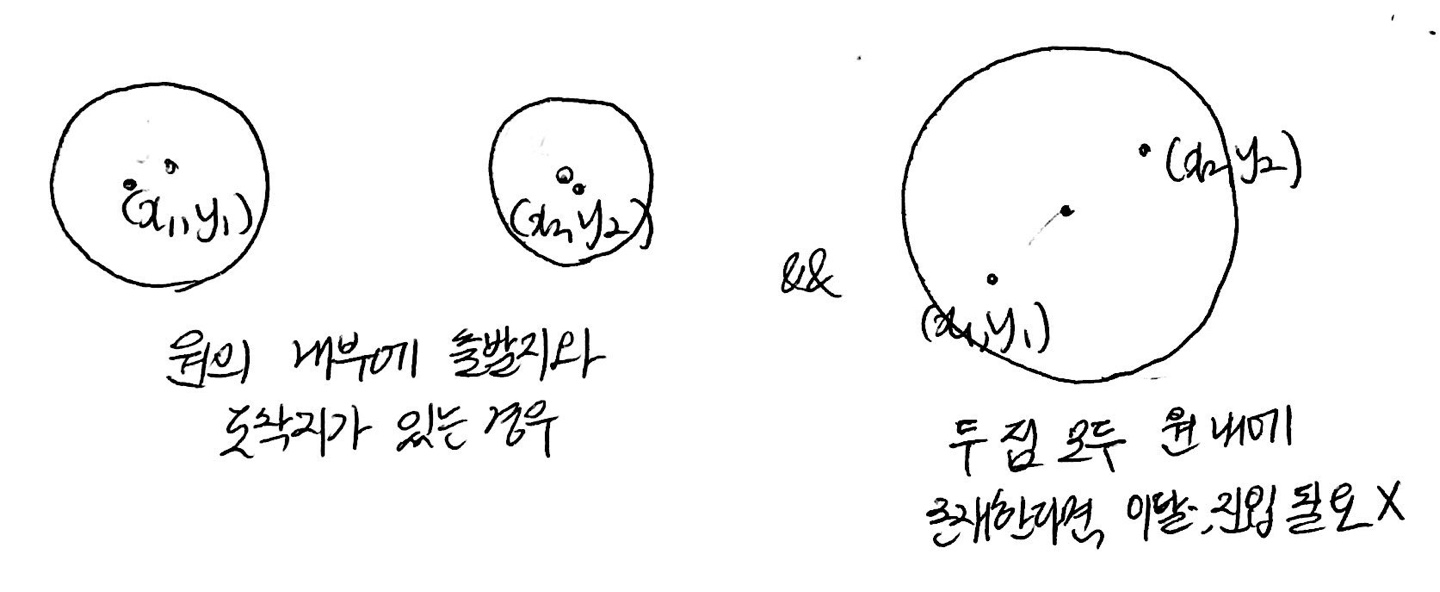 (x₁, y₁)
(x₂, y₂)
원의 내부에 출발지와
도착지가 있는 경우
&&
(x₂, y₂)
(x₁, y₁)
두 점 모두 원 내에
존재한다면, 이탈·진입 필요 X